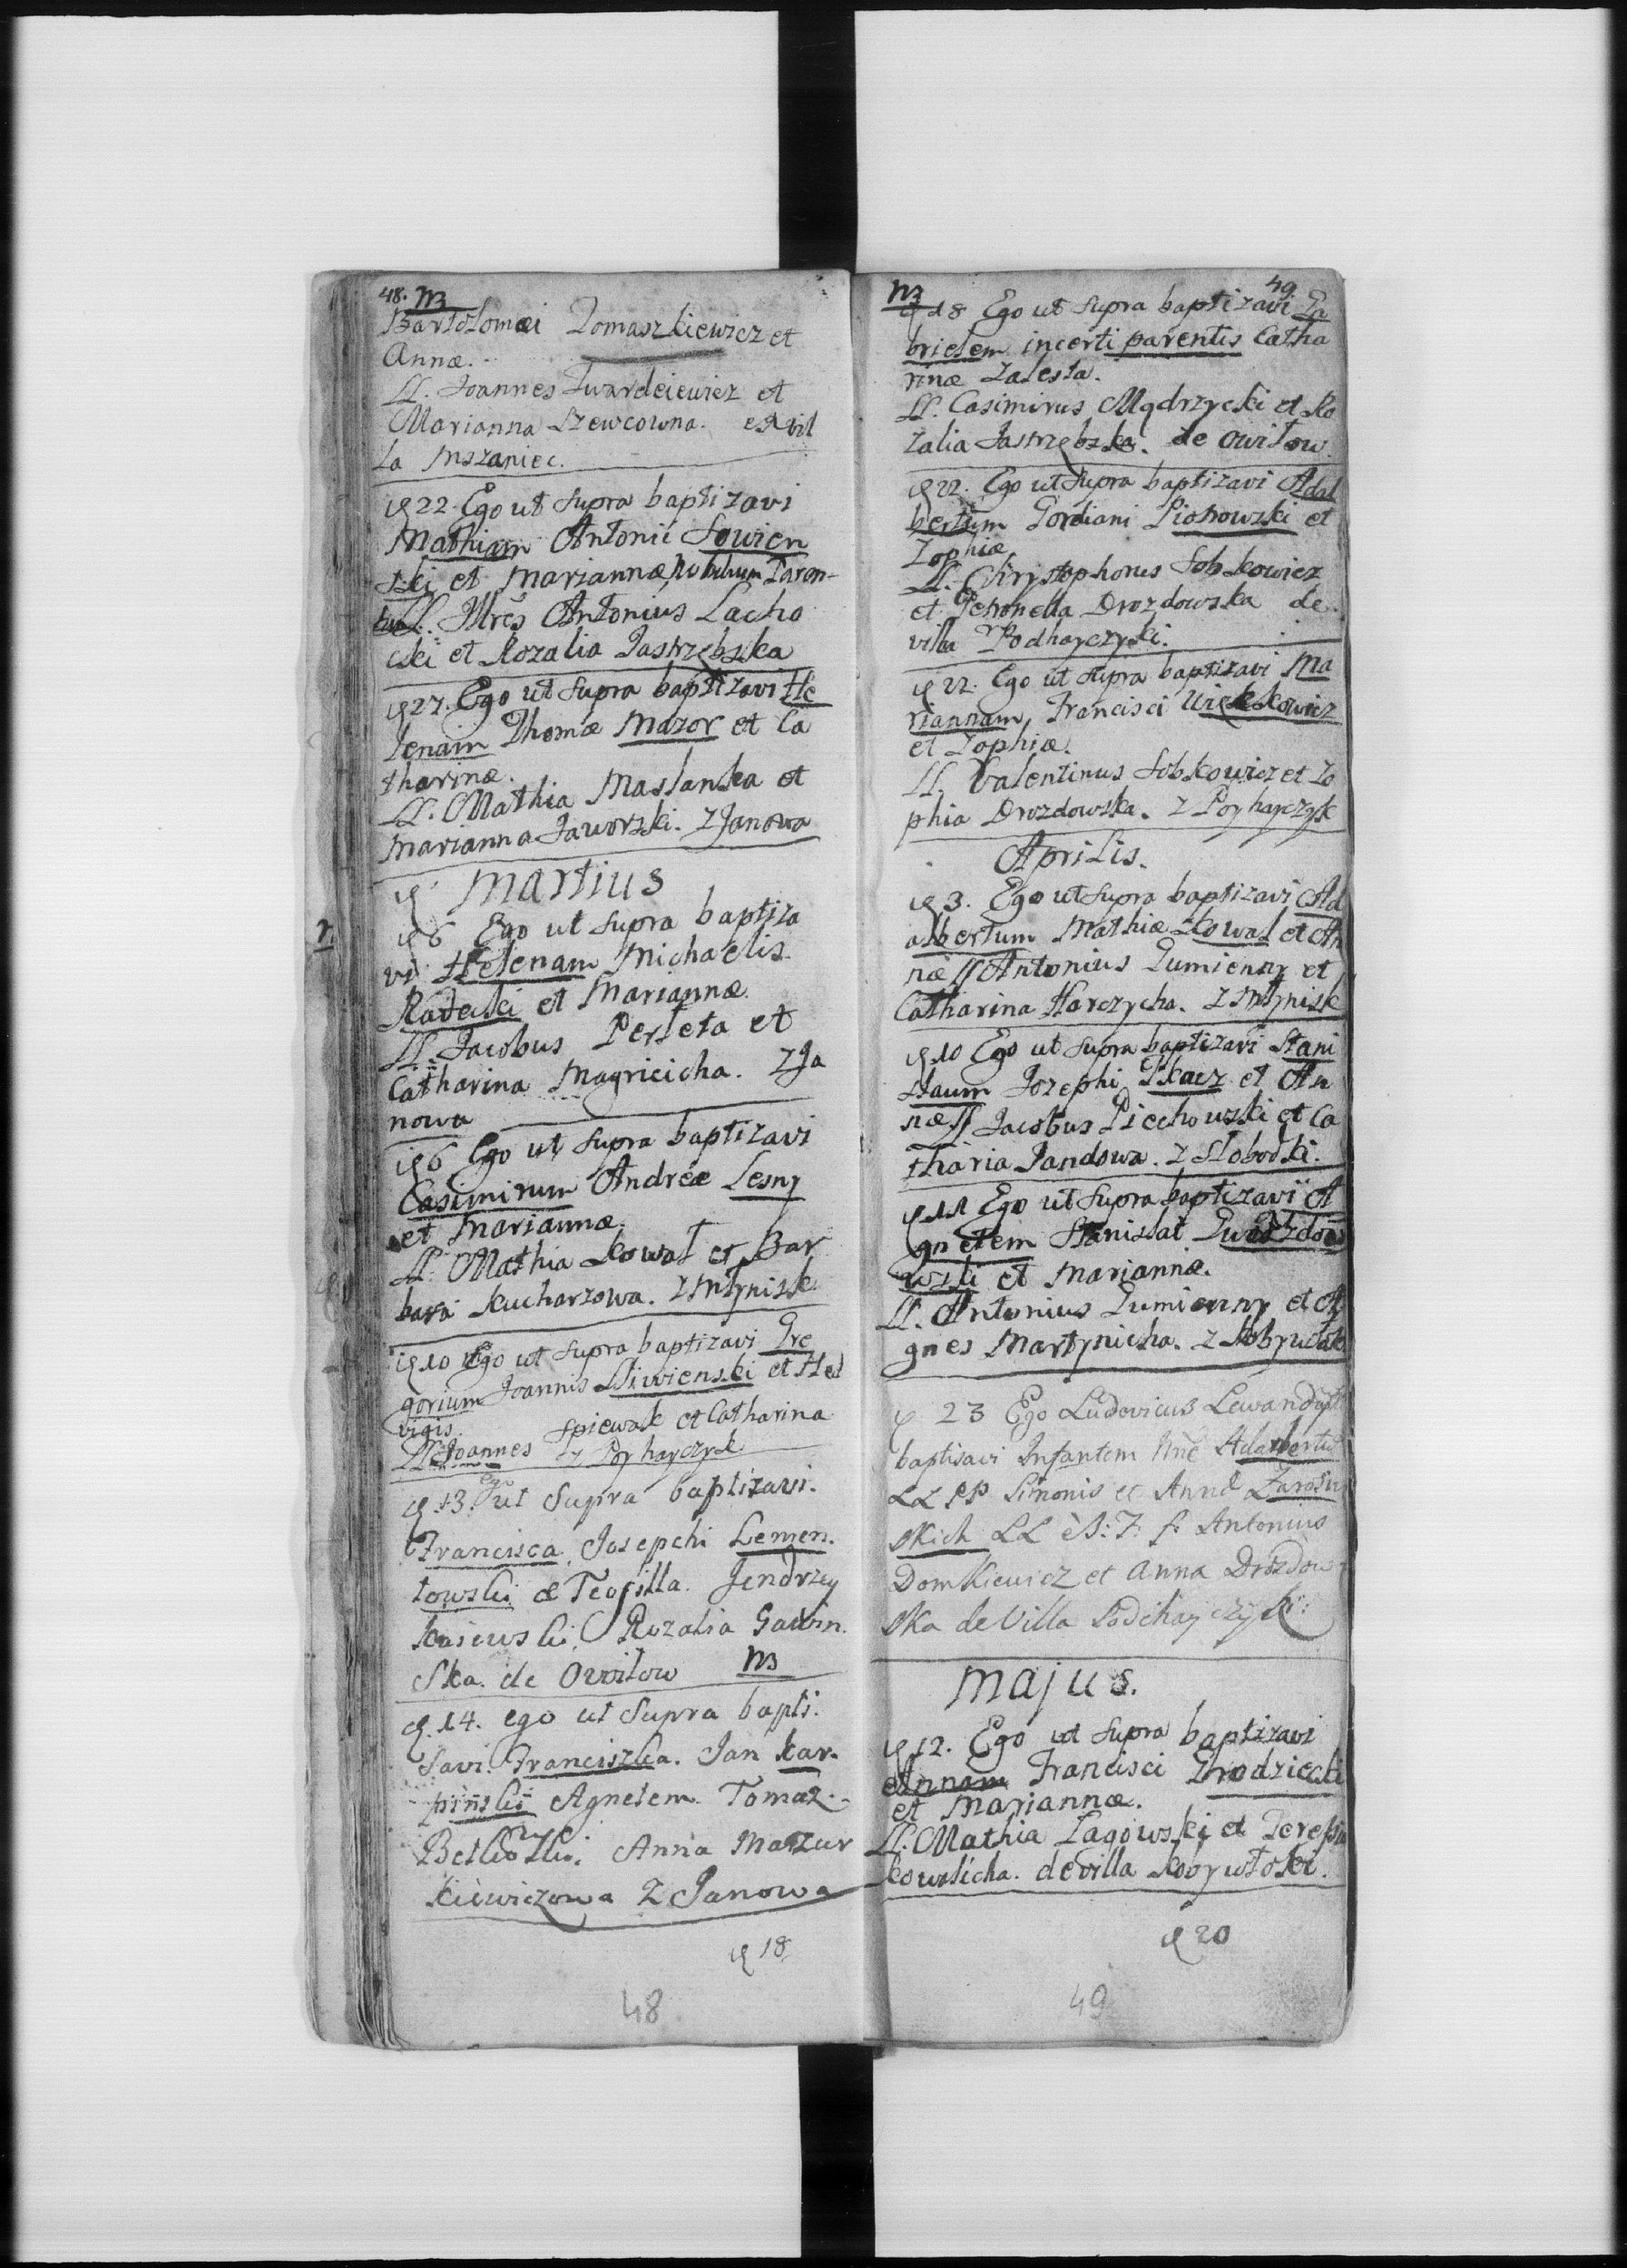 48. NB
Bartolomæi Tomaszkiewicz et
Annæ.
LL. Joannes Twardeiewicz et
Marianna Szewcowna. ex vil
la Mszaniec.
d 22. Ego ut supra baptizavi
Mathiam Antonii Sowien
ski et Mariannæ Nobilium Paren-
tum LL. Mres Antonius Lacho
cki et Rozalia Jastrzębska
d 27. Ego ut supra baptizavi He
lenam Thomæ Mazor et Ca
tharinæ.
LL. Mathia Maslanka et
Marianna Jaworzki. z Janowa
Martius
d 6 Ego ut supra baptiza
vi Helenam Michaelis
Radecki et Mariannæ.
LL. Jacobus Perleta et
Catharina Magricicha. z Ja
nowa
d 6 Ego ut supra baptizavi
Casimirum Andreæ Lesny
et Mariannæ.
LL. Mathia Kowal et Bar
bara Kucharzowa. z Młynisk
d 10 Ego ut supra baptizavi Gre
gorium Joannis Sliwienski et Hed
vigis.
LL Joannes Spiewak et Catharina
z Podhayczyk
d 13. Ego ut Supra baptizavi.
Francisca Josepchi Lemen.
towski & Teofilla. Jendrzey
Rozalia Gawin.
Ska. de Owitow NB
d. 14. ego ut Supra bapti.
savi. Franciszka. Jan Kar.
pinski Agnetem. Tomaz.
Anna Mazur
kiewiczowa z Janowa
d 18
48
NB 49
d 18 Ego ut supra baptizavi Ga
brielem incerti parentis Catha
rinæ Zalesta.
LL. Casimirus Mądrzycki et Ro
zalia Jastrzębska. de Owitow.
d 22. Ego ut supra baptizavi Adal
bertum Gordiani Piotrowzki et
Zophiæ
LL. Chrystophorus Sobkowicz
et Petronella Drozdowska de
villa Podhayczyki.
d 22. Ego ut supra baptizavi Ma
riannam, Francisci Więckowicz
et Zophiæ.
LL. Valentinus Sobkowicz et Zo
phia Drozdowska. z Podhayczyk
Aprilis.
d 3. Ego ut supra baptizavi Ad
albertum Mathiæ Kowal et An
næ LL Antonius Gumienny et
Catharina Harczycha. z Młynisk
d 10 Ego ut supra baptizavi Stani
slaum Jozephi Tkacz et An
næ. LL Jacobus Piechowski et Ca
tharia Jandowa. z Słobodki.
d 11 Ego ut supra baptizavi A
gnetem Stanislai Gwozdzdo
wski et Mariannæ.
LL. Antonius Gumienny et A
gnes Martynicha. z Kobywłok
d 23 Ego Ludovicus Lewand
baptisavi Infantem Nne Adalbertu
LL PP Simonis et Annæ Zarosin
skich LL Antonius
Domkiewicz et Anna Drozdow
ska de Villa Podihayczyk:
Majus.
d 12. Ego ut supra baptizavi
Annam Francisci Zrodziecki
et Mariannæ.
LL. Mathia Lagowski et Teressia
Kowalicha. de villa Kobywłoki.
d 20
49